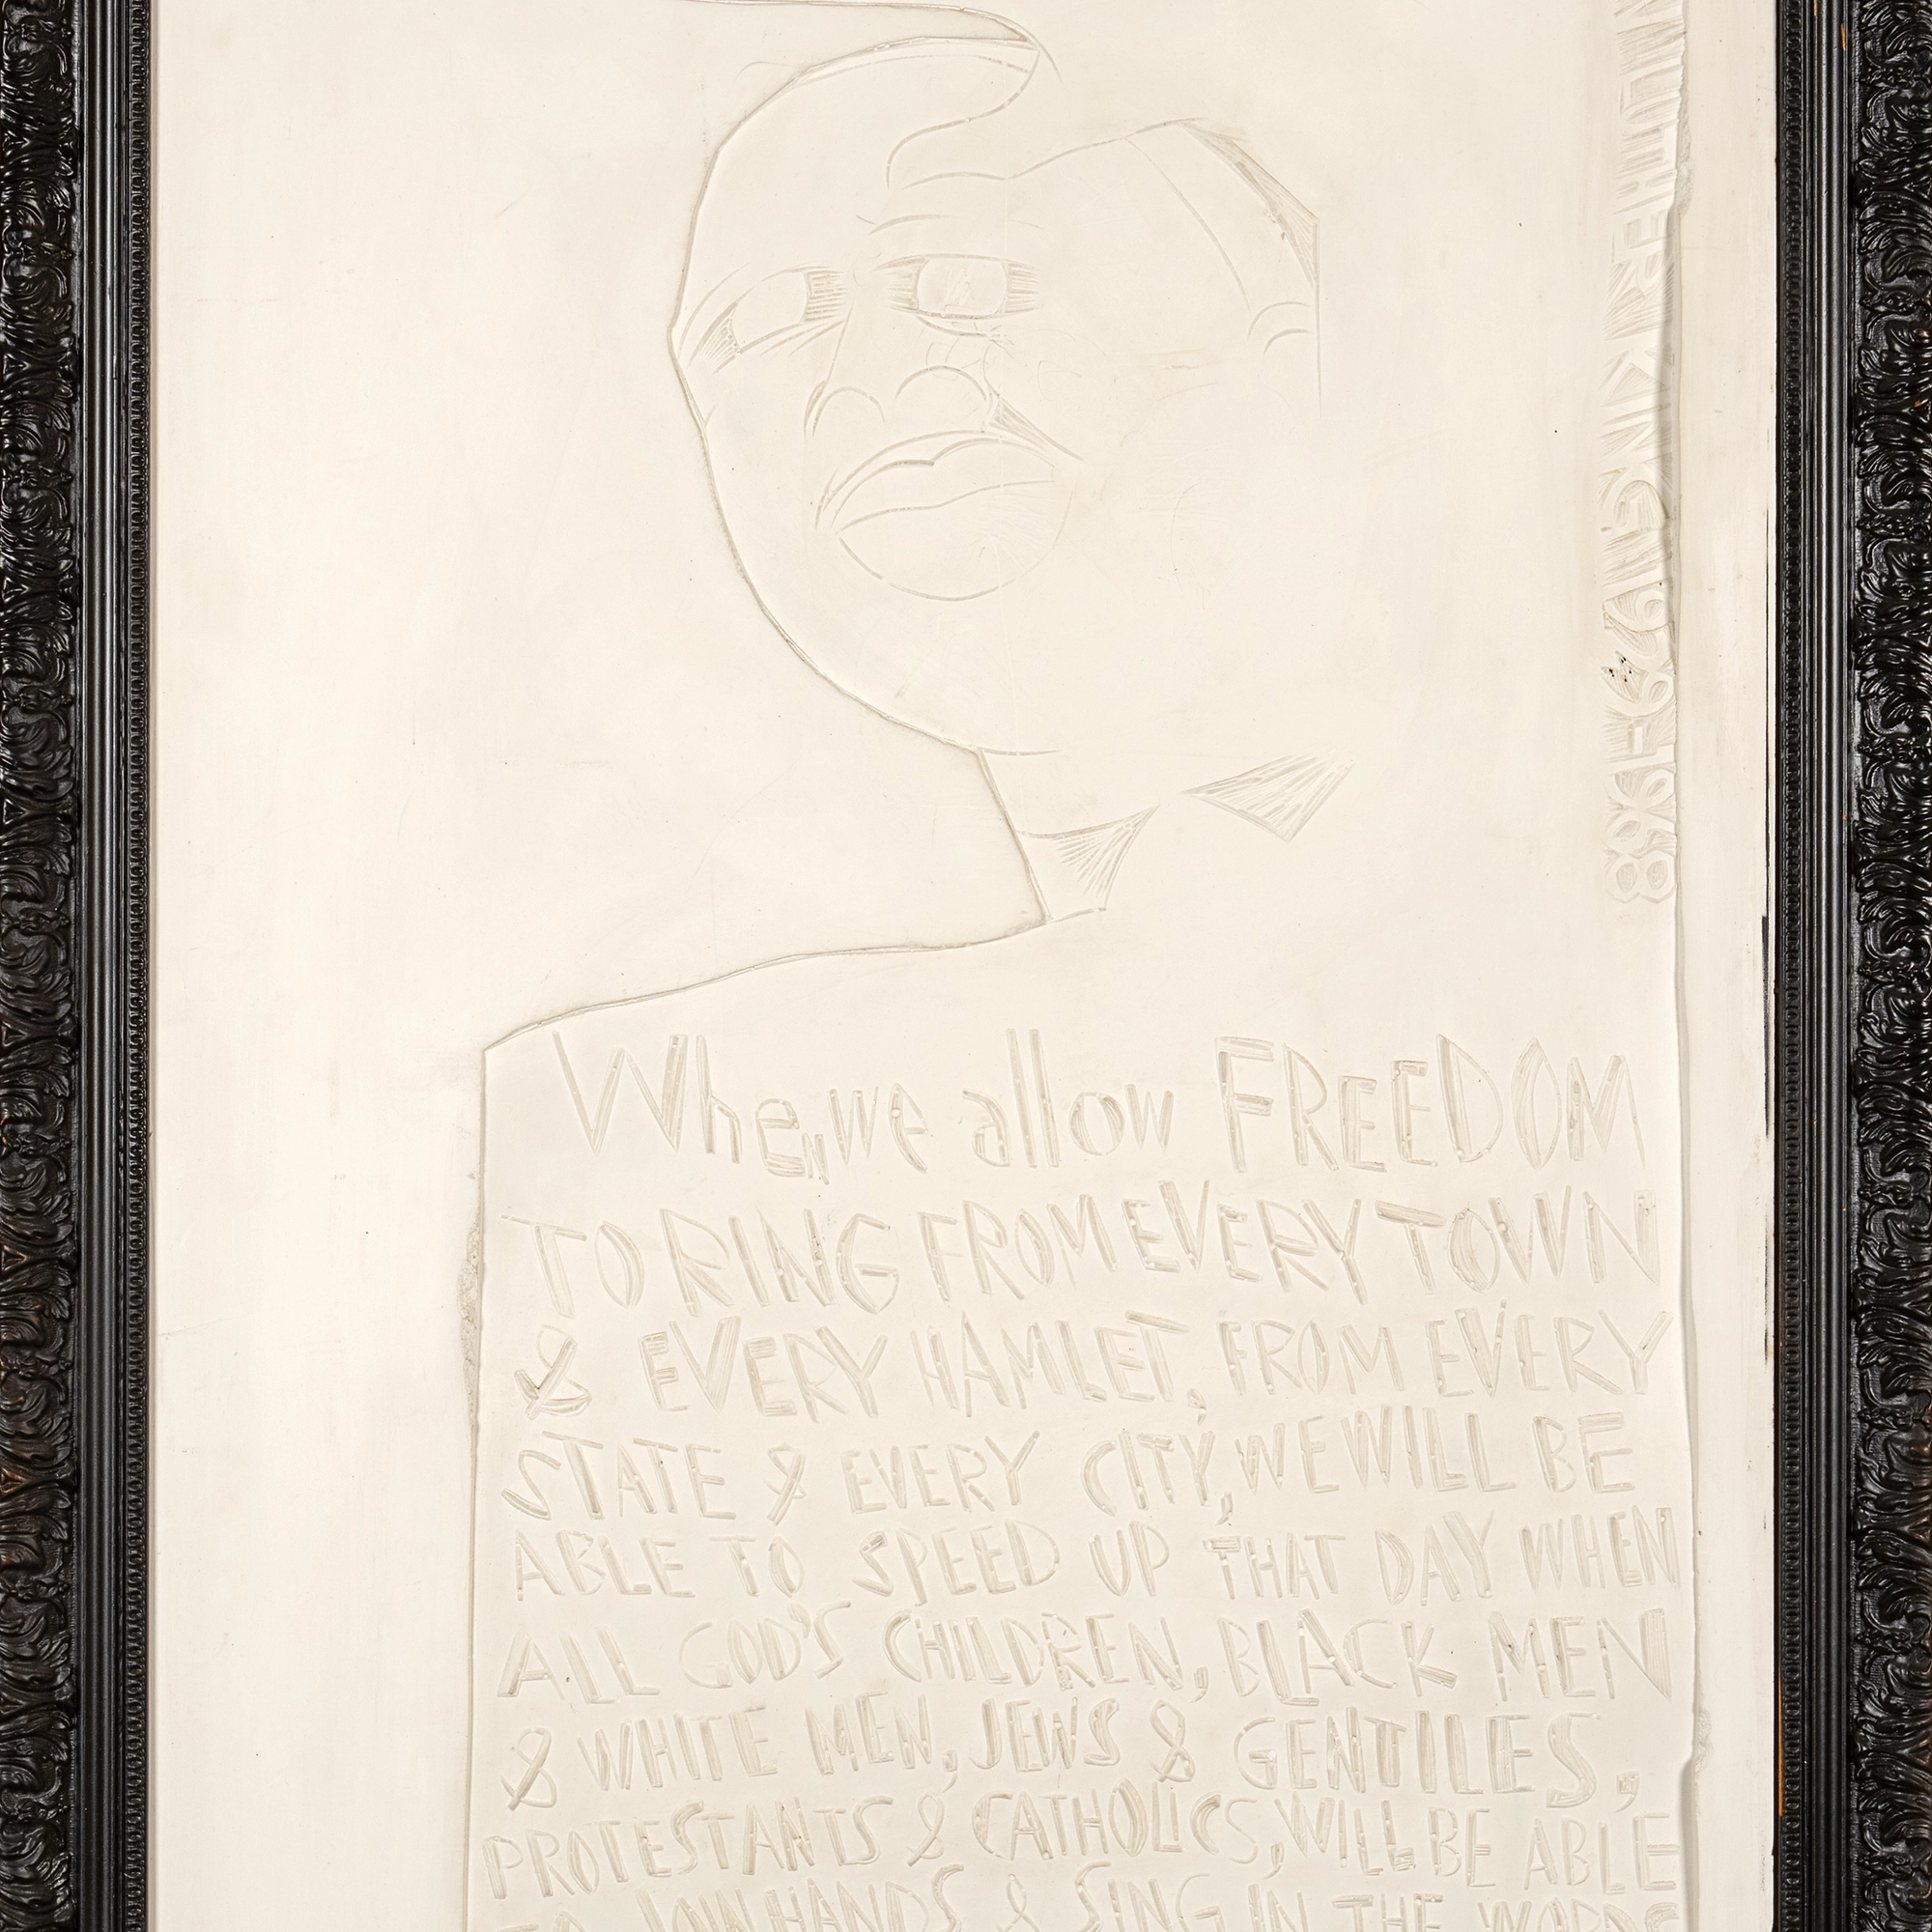 LUTHER KING JR 1929-1968
When we allow FREEDOM
TO RING FROM EVERY TOWN
& EVERY HAMLET, FROM EVERY
STATE & EVERY CITY, WE WILL BE
ABLE TO SPEED UP THAT DAY WHEN
ALL GOD'S CHILDREN, BLACK MEN
& WHITE MEN, JEWS & GENTILES,
PROTESTANTS & CATHOLICS, WILL BE ABLE
TO JOIN HANDS & SING IN THE WORDS